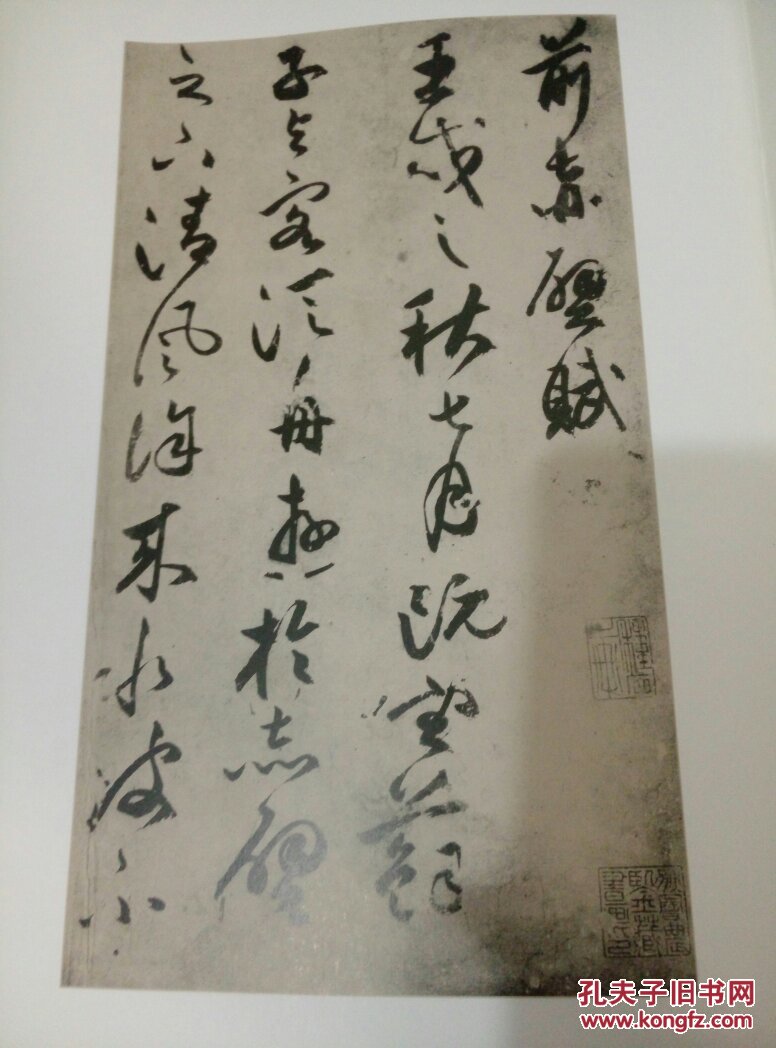 前赤壁賦
壬戌之秋七月既望蘇
子与客泛舟遊於赤壁
之下清風徐來水波不
孔夫子旧书网
www.kongfz.com